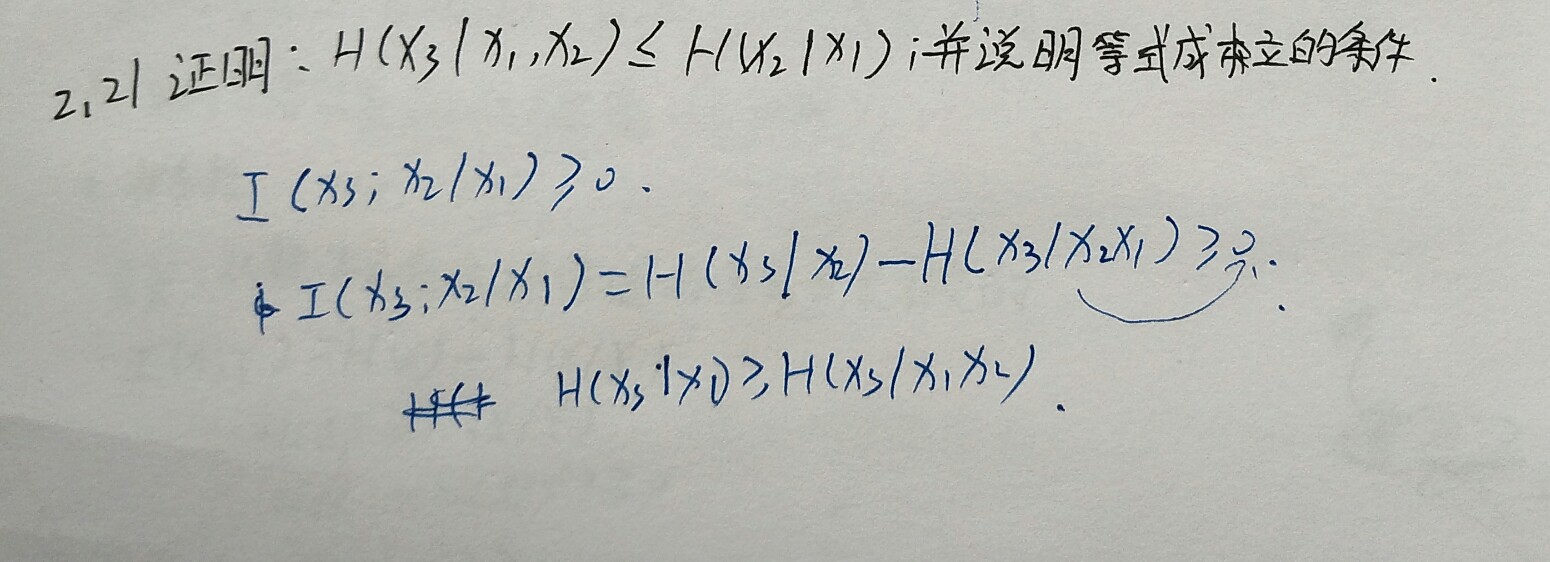 2.21 证明: H(X3/X1,X2)≤H(X2/X1);并说明等式成立的条件.
I(X3;X2/X1)≥0.
I(X3;X2/X1)=H(X3/X2)-H(X3/X2X1)≥0.
H(X3/X1)≥H(X3/X1X2).